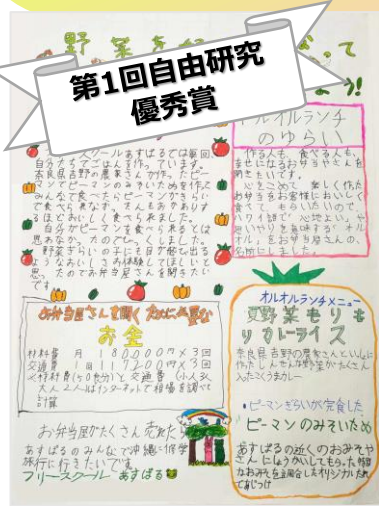 野菜を
って
う!
第1回自由研究
優秀賞
フリースクールあすぱるでは毎回
自分たちでごはんを作っています。
奈良県吉野の農家さんが作ったピー
マンでピーマンのみそいためを作と
みんなで食べたらピーマンがきらい
で食べられなかった
るほどおいしく食べられました。
自分がピーマンを食べれるとは
思わなかったのでびっくりしました。
野菜ぎらいの子にも目が飛び出る
ようなおいしさを体験してほしいと
思ったのでお弁当屋さんを開きたい
です
オルオルランチ
のゆらい
作る人も、食べる人も、
幸せになるお弁当やさんを
開きたいです。
心をこめて、楽しく作た
お弁当をお客様においしく
食べてもらいたいので
ハワイ語で心地よい、や
思いやりを意味する、オル
オル、をお弁当屋さんの、
名前にしました。
お弁当屋さんを開くために必要な
お金
材料費 月 18000円×3回
交通費 1回 11720円×3回
大人2人はインターネットで相場を調べて
計算
お弁当屋がたくさん売れたら
あすぱるのみんなで沖縄に修学
旅行に行きたいです。
フリースクール あすぱる
オルオルランチメニュー
夏野菜もりも
りカレーライス
奈良県吉野の農家さんといっしに
作たしんせんな野菜がたくさん
入たごくうまカレー
・ピーマンぎらいが完食した
ピーマンのみそいため
あすぱるの近くのおみそや
さんにしょうかいしてもらった
なおみそを調合したオリジナルたれ
であじつけ